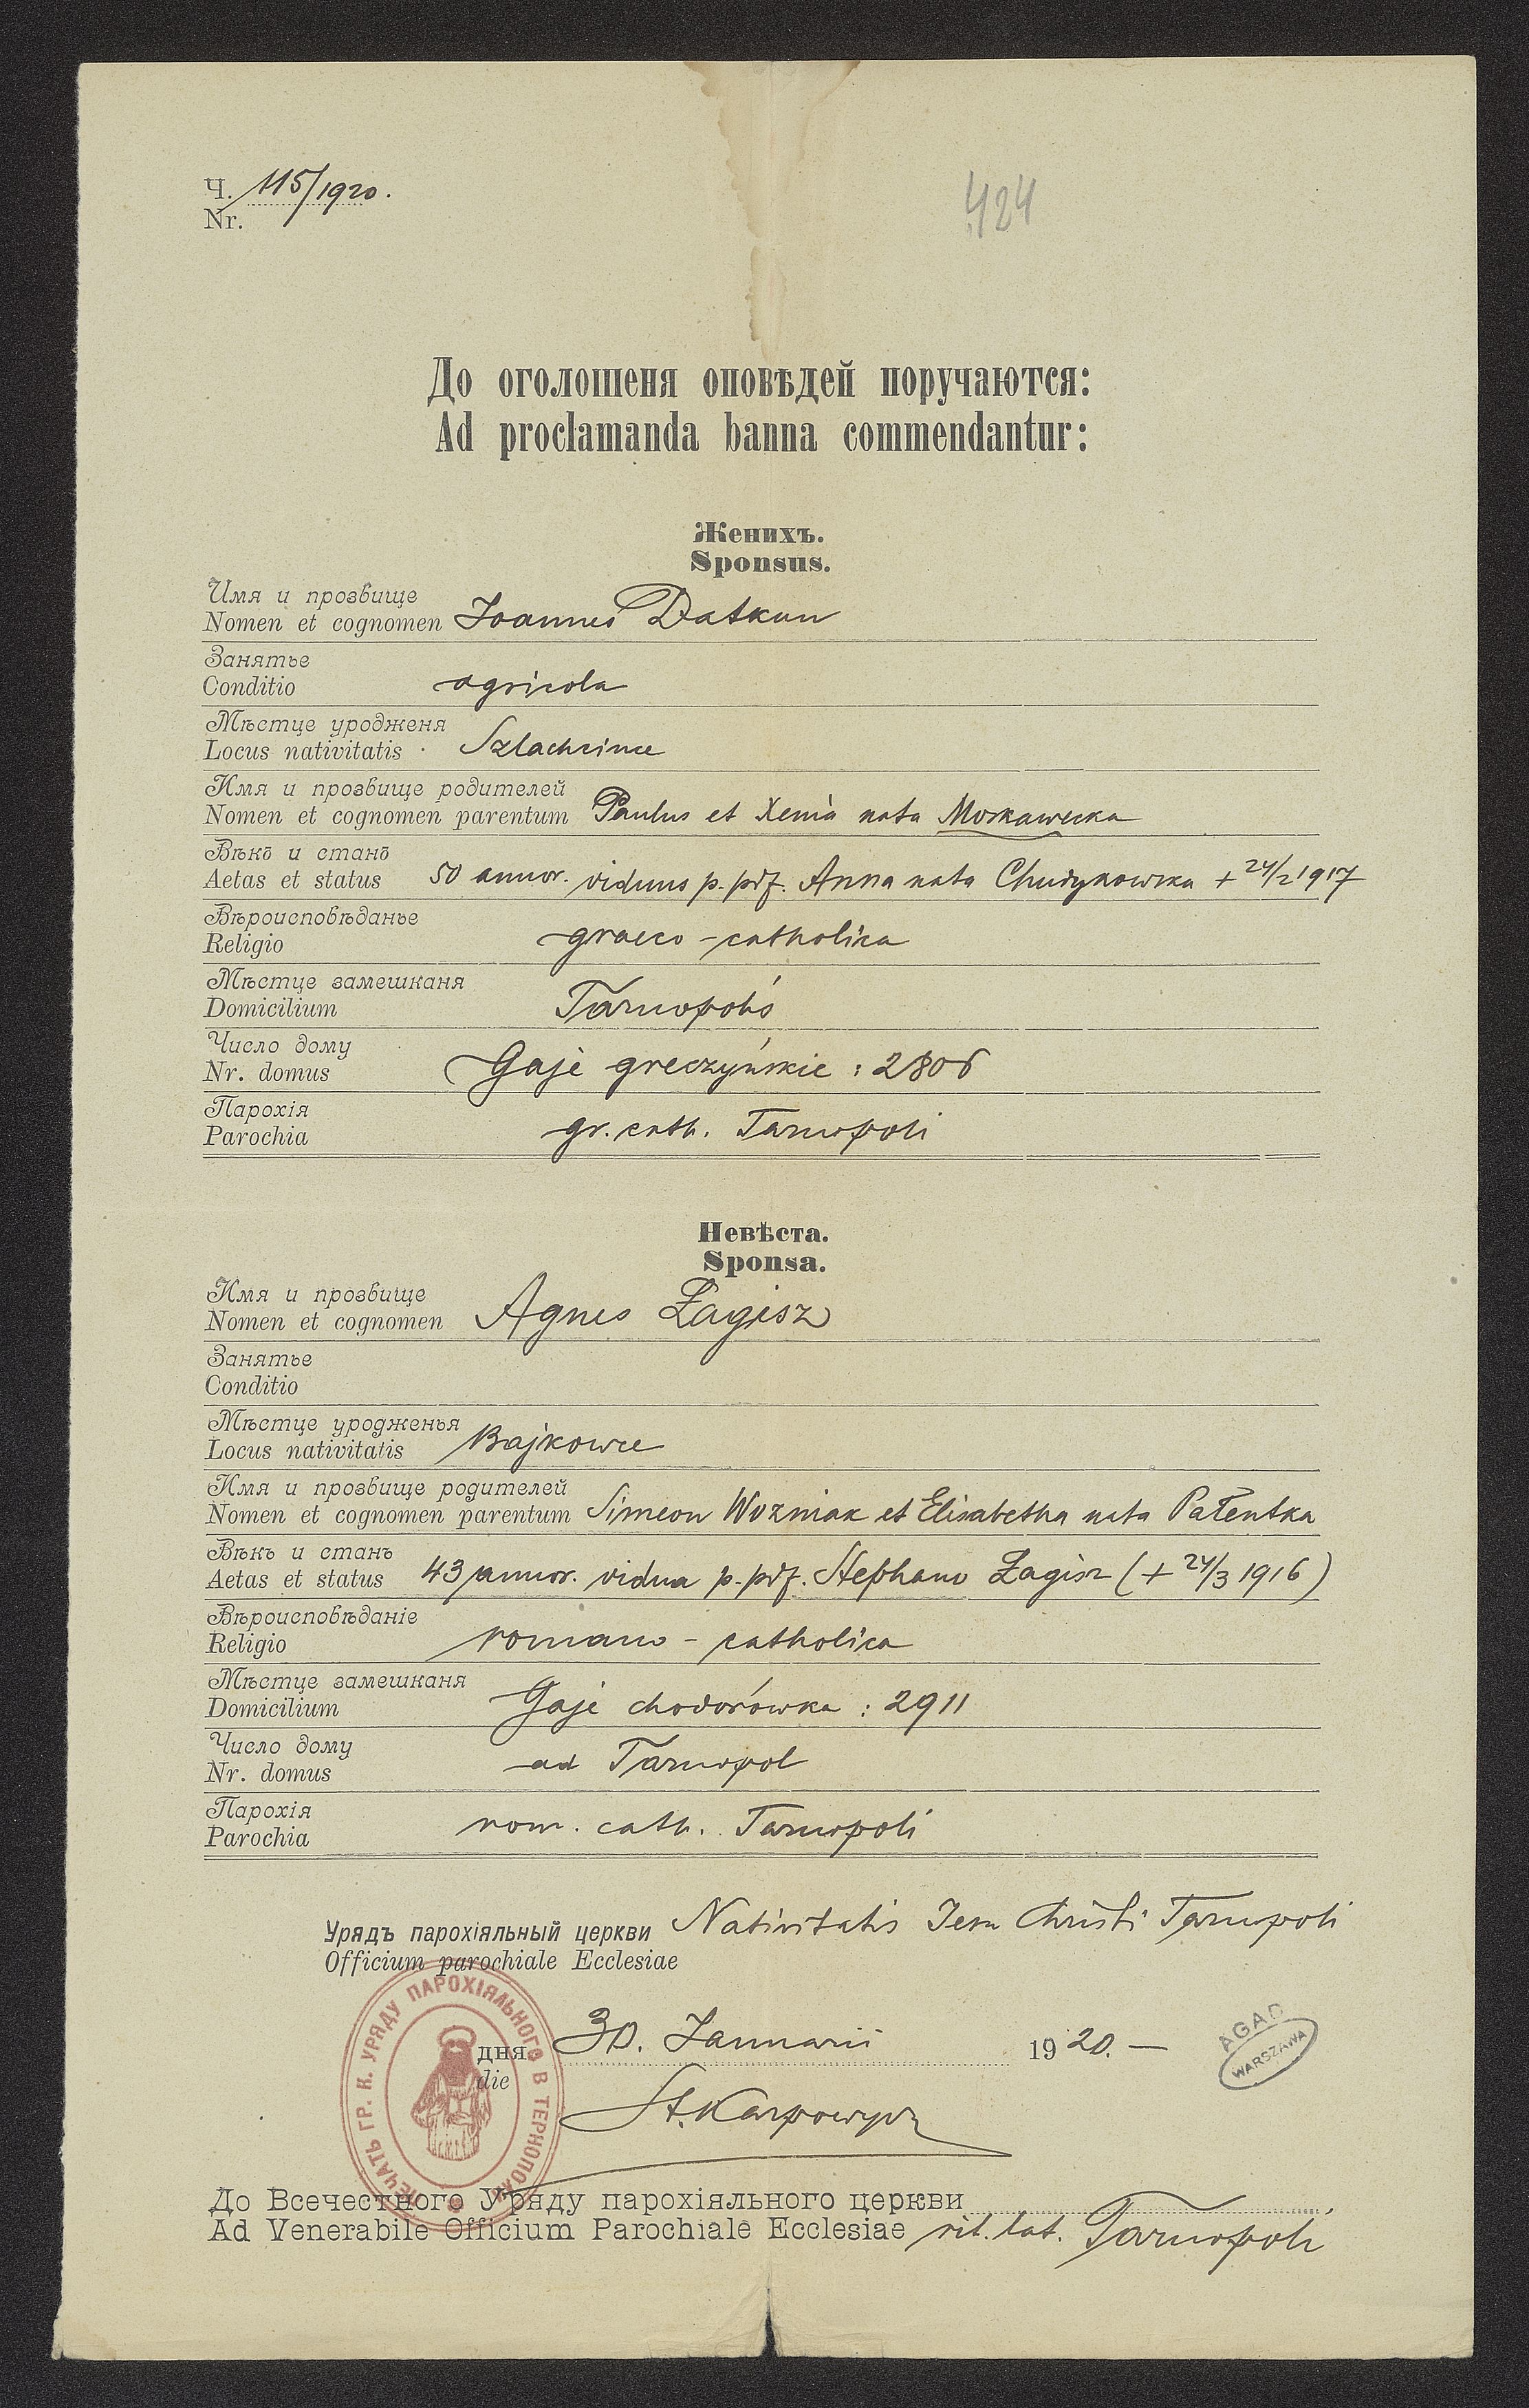 Ч. 115/1920.
Nr.
424
До оголошеня оповѣдей поручаются:
Ad proclamanda banna commendantur:
Женихъ.
Sponsus.
Имя и прозвище
Nomen et cognomen Joannes Datkun
Занятье
Conditio agricola
Мѣстце уродженя
Locus nativitatis Szlachcince
Имя и прозвище родителей
Nomen et cognomen parentum Paulus et Xenia nata Morkawecka
Вѣкъ и станъ
Aetas et status 50 annor. viduus p. pdf. Anna nata + 24/2 1917
Вѣроисповѣданье
Religio graeco-catholica
Мѣстце замешканя
Domicilium Tarnopolis
Число дому
Nr. domus Gaje greczyńskie : 2806
Парохія
Parochia gr. cath. Tarnopoli
Невѣста.
Sponsa.
Имя и прозвище
Nomen et cognomen Agnes Łagisz
Занятье
Conditio
Мѣстце уродженья
Locus nativitatis Bajkowce
Имя и прозвище родителей
Nomen et cognomen parentum Simeon Wozniak et Elisabetha nata Pałentka
Вѣкъ и станъ
Aetas et status 43 annor. vidua p. pdf. Stephano Łagisz (+ 24/3 1916)
Вѣроисповѣданіе
Religio romano-catholica
Мѣстце замешканя
Domicilium Gaje chodorówka : 2911
Число дому
Nr. domus ad Tarnopol
Парохія
Parochia rom. cath. Tarnopoli
Урядъ парохіяльный церкви Nativitatis Jesu Christi Tarnopoli
Officium parochiale Ecclesiae
ПЕЧАТЬ ГР. К. УРЯДУ ПАРОХІЯЛЬНОГО В ТЕРНОПОЛИ
дня 30. Januarii 1920. —
die
AGAD
WARSZAWA
St. Karpowycz
До Всечестного Уряду парохіяльного церкви
Ad Venerabile Officium Parochiale Ecclesiae rit. lat. Tarnopoli